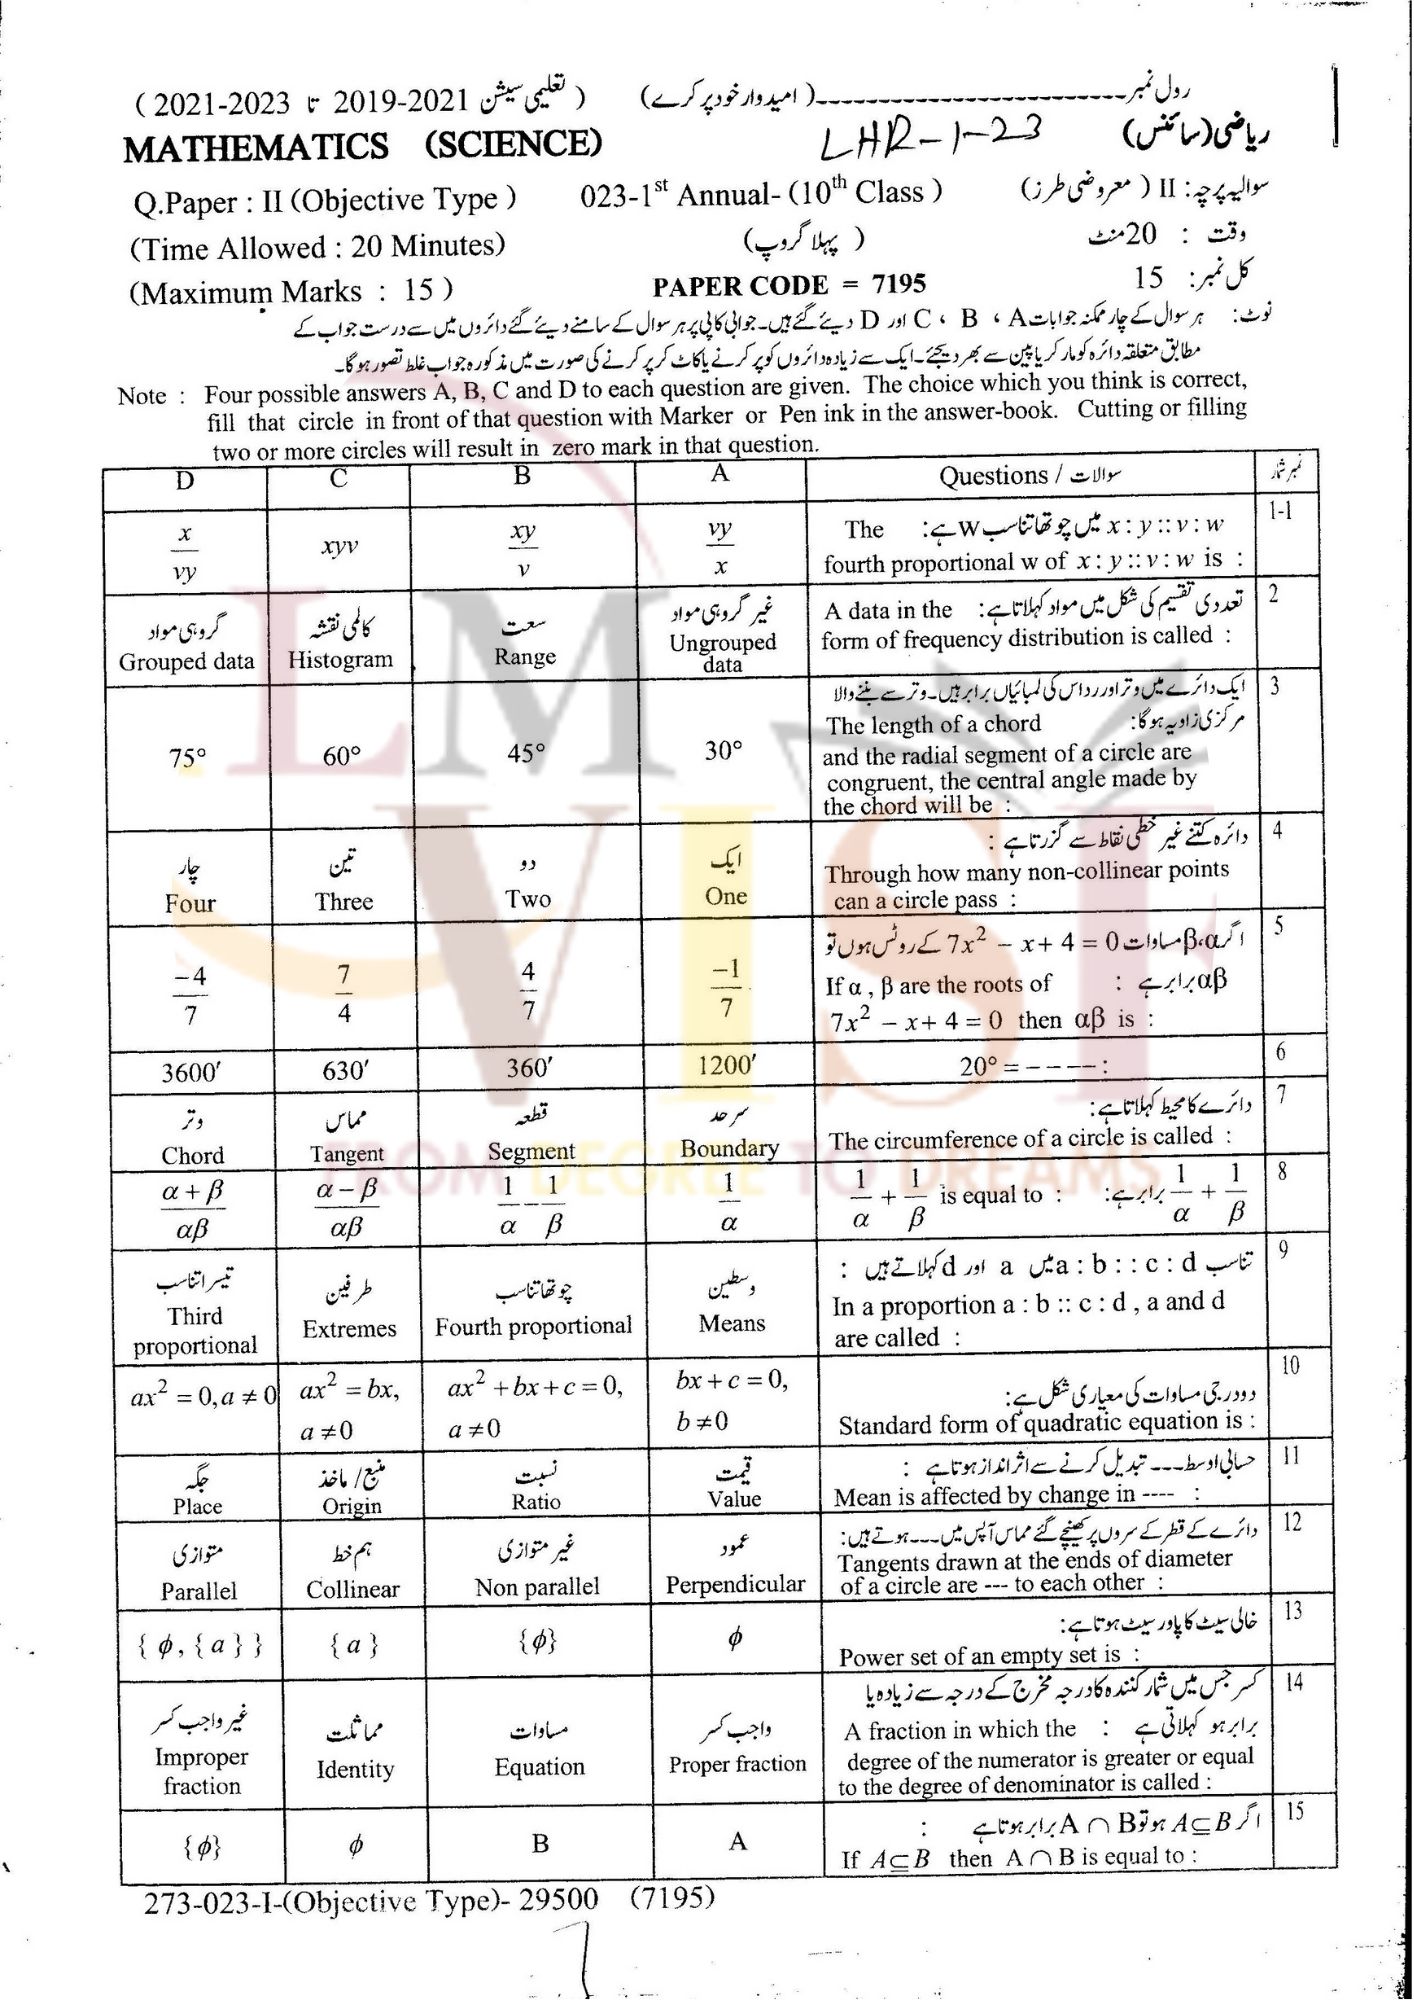 رول نمبر ------------------------ (امیدوار خود پر کرے) ( تعلیمی سیشن 2021-2019 تا 2023-2021 )
ریاضی (سائنس) LHR-1-23 MATHEMATICS (SCIENCE)
Q.Paper : II (Objective Type ) 023-1st Annual- (10th Class ) سوالیہ پرچہ : II ( معروضی طرز)
(Time Allowed : 20 Minutes) ( پہلا گروپ ) وقت : 20 منٹ
(Maximum Marks : 15 ) PAPER CODE = 7195 کل نمبر: 15
نوٹ: ہر سوال کے چار ممکنہ جوابات A ، B ، C اور D دیئے گئے ہیں۔ جوابی کاپی پر ہر سوال کے سامنے دیئے گئے دائروں میں سے درست جواب کے
مطابق متعلقہ دائرہ کو مارکر یا پین سے بھر دیجئے۔ ایک سے زیادہ دائروں کو پر کرنے یا کاٹ کر پر کرنے کی صورت میں مذکورہ جواب غلط تصور ہوگا۔
Note : Four possible answers A, B, C and D to each question are given. The choice which you think is correct,
fill that circle in front of that question with Marker or Pen ink in the answer-book. Cutting or filling
two or more circles will result in zero mark in that question.
D C B A Questions / سوالات نمبر شمار
1-1 x : y :: v : w میں چوتھا تناسب w ہے: The
fourth proportional w of x : y :: v : w is :
x/vy xyv xy/v vy/x
2 تعددی تقسیم کی شکل میں مواد کہلاتا ہے: A data in the
form of frequency distribution is called :
گروہی مواد کالمی نقشہ سعت غیر گروہی مواد
Grouped data Histogram Range Ungrouped data
3 ایک دائرے میں وتر اور رداس کی لمبائیاں برابر ہیں۔ وتر سے بننے والا
مرکزی زاویہ ہوگا: The length of a chord
and the radial segment of a circle are
congruent, the central angle made by
the chord will be :
75° 60° 45° 30°
4 دائرہ کتنے غیر خطی نقاط سے گزرتا ہے :
Through how many non-collinear points
can a circle pass :
چار تین دو ایک
Four Three Two One
5 اگر α،β مساوات 7x² − x + 4 = 0 کے روٹس ہوں تو
αβ برابر ہے : If α , β are the roots of
7x² − x + 4 = 0 then αβ is :
−4/7 7/4 4/7 −1/7
6 20° = − − − − :
3600′ 630′ 360′ 1200′
7 دائرے کا محیط کہلاتا ہے:
The circumference of a circle is called :
وتر مماس قطعہ سرحد
Chord Tangent Segment Boundary
8 1/α + 1/β برابر ہے: 1/α + 1/β is equal to :
α + β/αβ α − β/αβ 1/α − 1/β 1/α
9 تناسب a : b : : c : d میں a اور d کہلاتے ہیں :
In a proportion a : b :: c : d , a and d
are called :
تیسرا تناسب طرفین چوتھا تناسب وسطین
Third proportional Extremes Fourth proportional Means
10 دو درجی مساوات کی معیاری شکل ہے:
Standard form of quadratic equation is :
ax² = 0, a ≠ 0 ax² = bx, a ≠ 0 ax² + bx + c = 0, a ≠ 0 bx + c = 0, b ≠ 0
11 حسابی اوسط --- تبدیل کرنے سے اثر انداز ہوتا ہے :
Mean is affected by change in ---- :
جگہ منبع/ ماخذ نسبت قیمت
Place Origin Ratio Value
12 دائرے کے قطر کے سروں پر کھینچے گئے مماس آپس میں --- ہوتے ہیں:
Tangents drawn at the ends of diameter
of a circle are --- to each other :
متوازی ہم خط غیر متوازی عمود
Parallel Collinear Non parallel Perpendicular
13 خالی سیٹ کا پاور سیٹ ہوتا ہے:
Power set of an empty set is :
{ ϕ , { a } } { a } {ϕ} ϕ
14 کسر جس میں شمار کنندہ کا درجہ مخرج کے درجہ سے زیادہ یا
برابر ہو کہلاتی ہے : A fraction in which the
degree of the numerator is greater or equal
to the degree of denominator is called :
غیر واجب کسر مماثلت مساوات واجب کسر
Improper fraction Identity Equation Proper fraction
15 اگر A⊆B ہو تو A ∩ B برابر ہوتا ہے :
If A⊆B then A ∩ B is equal to :
{ϕ} ϕ B A
273-023-I-(Objective Type)- 29500 (7195)
LM
VISF
FROM DEGREE TO DREAMS